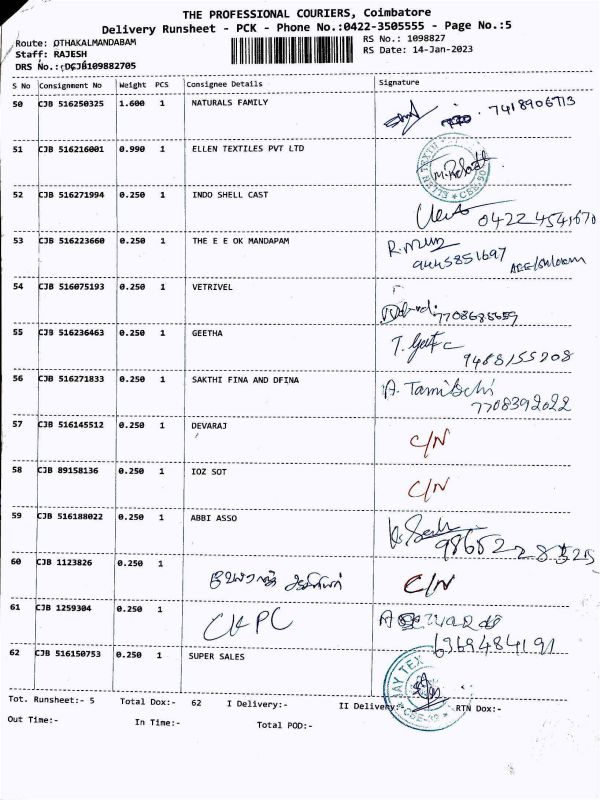 THE PROFESSIONAL COURIERS, Coimbatore
Delivery Runsheet - PCK - Phone No.:0422-3505555 - Page No.:5
Route: OTHAKALMANDABAM
RS No.: 1098827
Staff: RAJESH
RS Date: 14-Jan-2023
DRS No.: DCJB109882705
S No Consignment No Weight PCS Consignee Details Signature
50 CJB 516250325 1.600 1 NATURALS FAMILY 7418906713
51 CJB 516216001 0.990 1 ELLEN TEXTILES PVT LTD
52 CJB 516271994 0.250 1 INDO SHELL CAST 0422 4541670
53 CJB 516223660 0.250 1 THE E E OK MANDAPAM 9445851697
54 CJB 516075193 0.250 1 VETRIVEL 7708685659
55 CJB 516236463 0.250 1 GEETHA 9488155208
56 CJB 516271833 0.250 1 SAKTHI FINA AND DFINA 7708392022
57 CJB 516145512 0.250 1 DEVARAJ C/N
58 CJB 89158136 0.250 1 IOZ SOT C/N
59 CJB 516188022 0.250 1 ABBI ASSO
60 CJB 1123826 0.250 1 C/N
61 CJB 1259304 0.250 1 6369484191
62 CJB 516150753 0.250 1 SUPER SALES JAY TEX CBE-32
Tot. Runsheet:- 5 Total Dox:- 62 I Delivery:- II Delivery:- RTN Dox:-
Out Time:- In Time:- Total POD:-